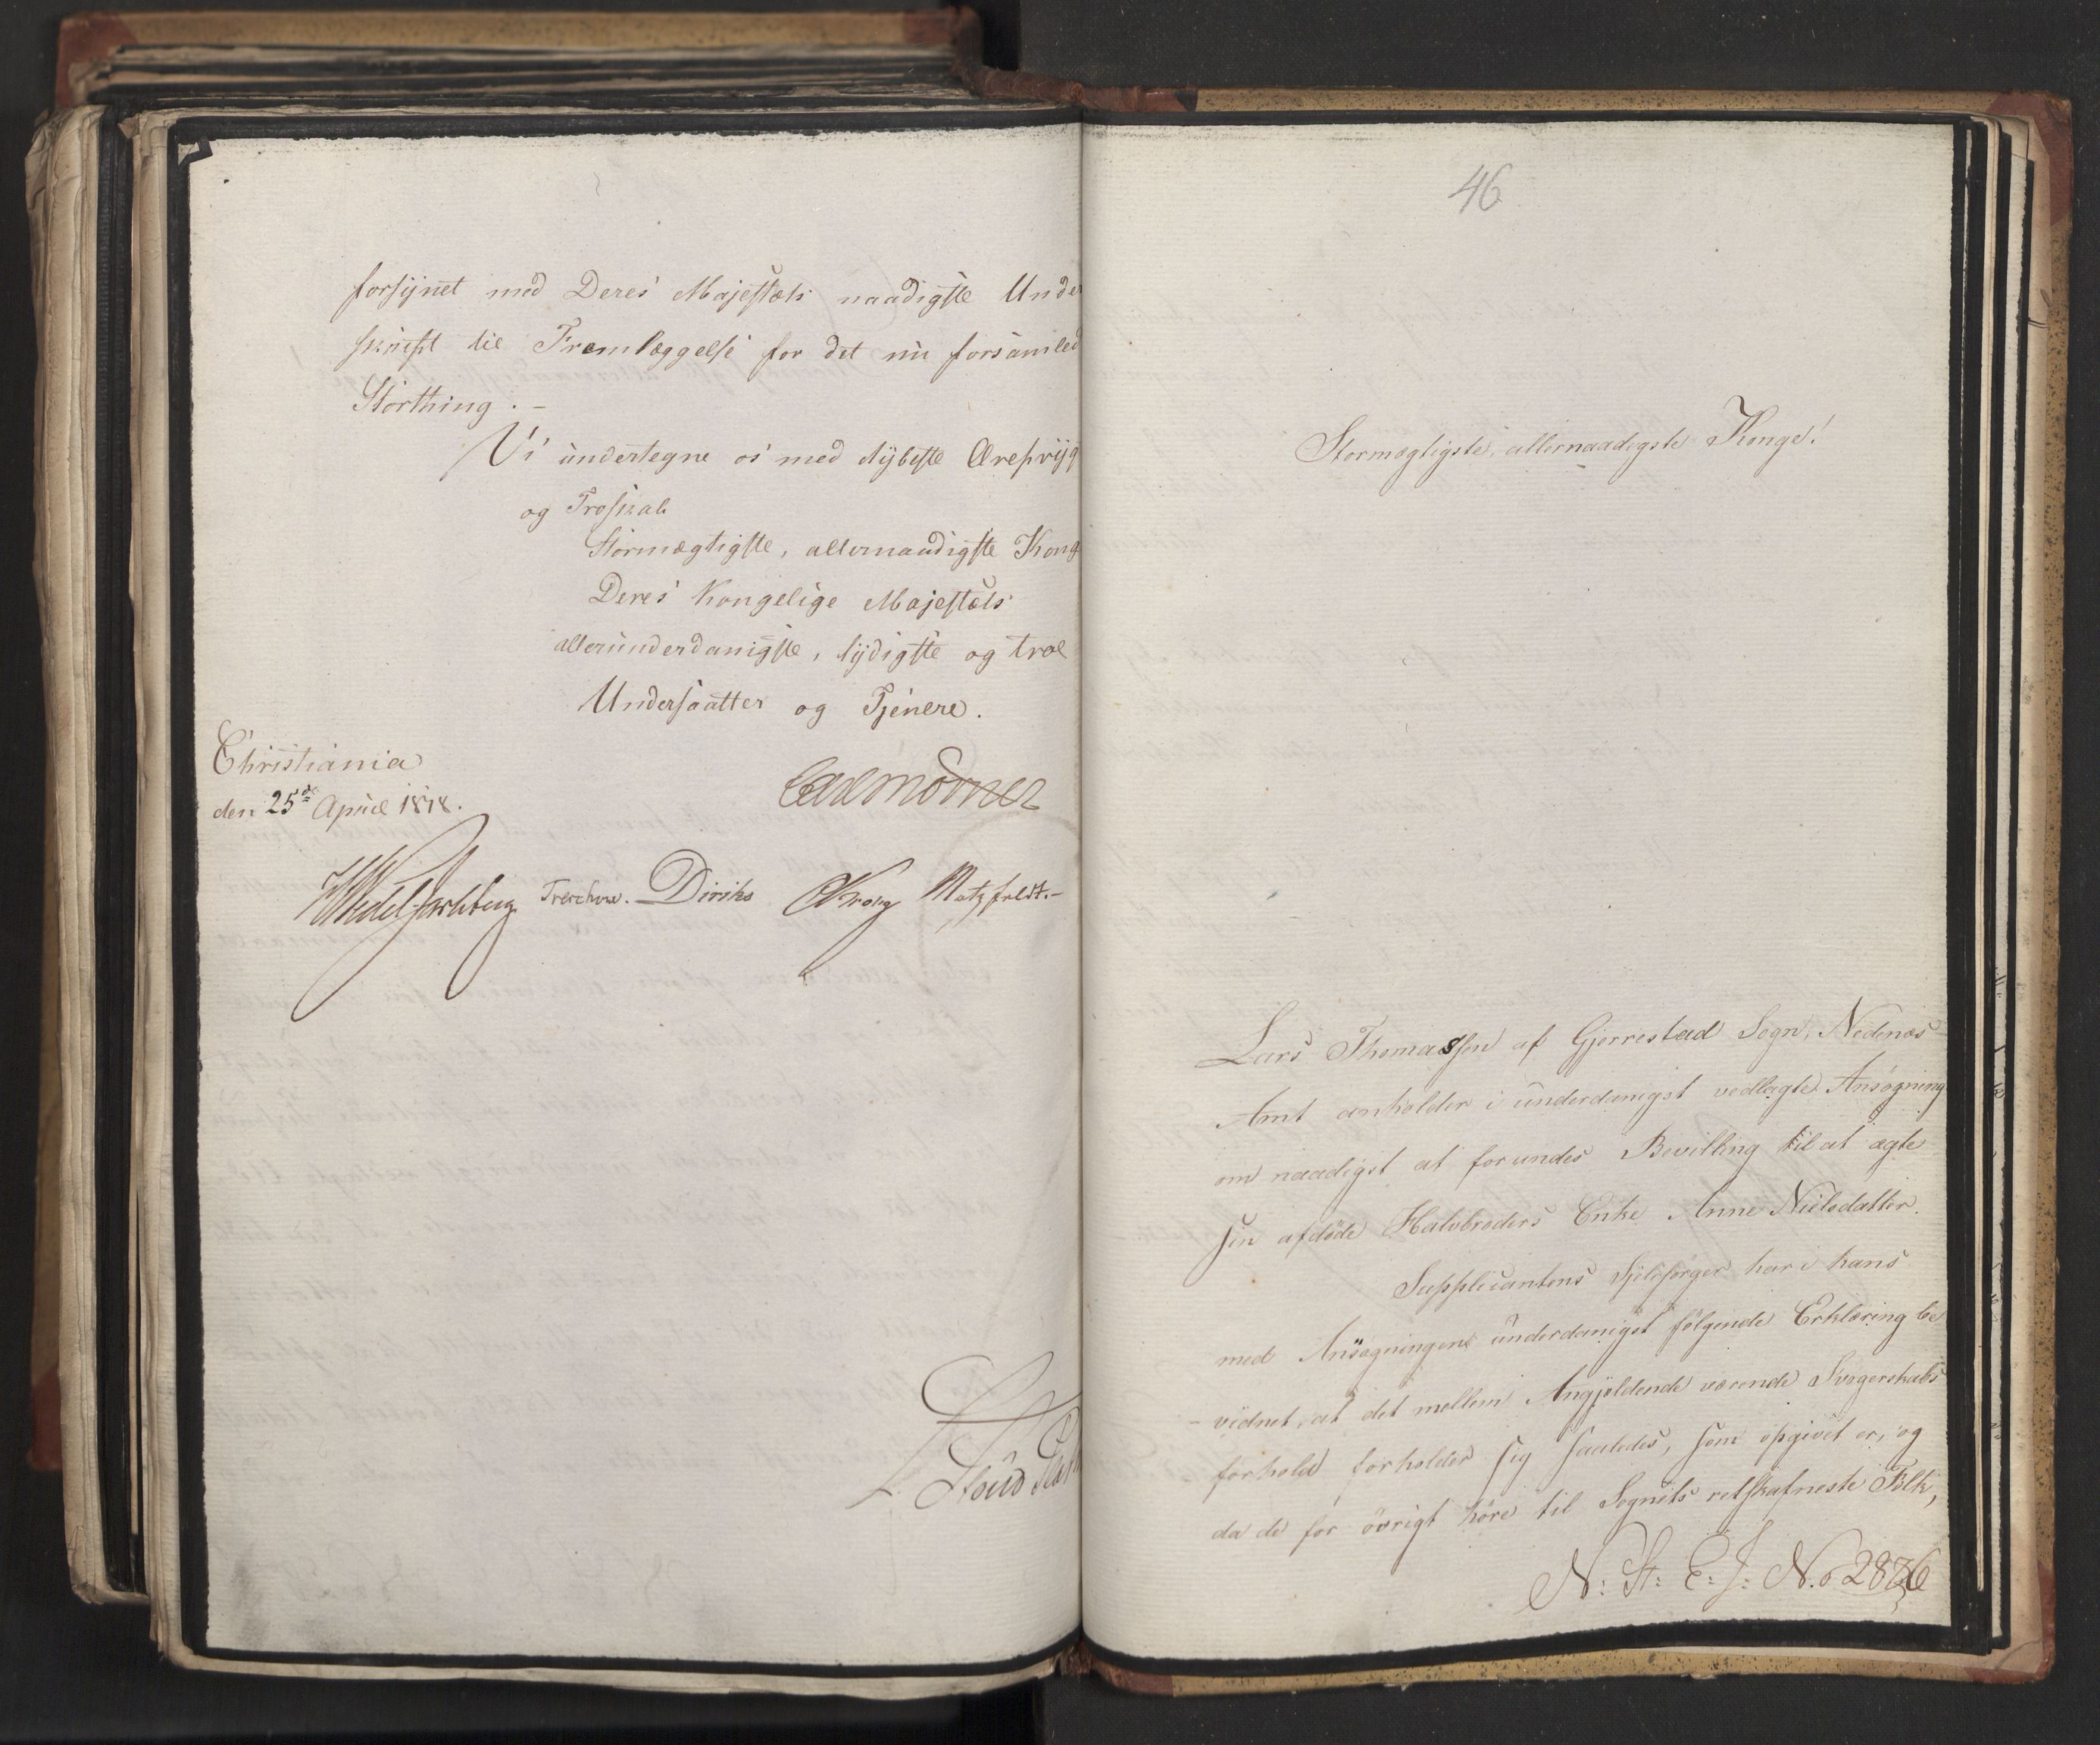 forsynet med Deres Majestæts naadigste Under
skrift til Fremlæggelse for det nu forsamled
Storthing. -
Vi undertegne os med dybeste Ærefrygt
og Troskab
Stormægtigste, allernaadigste Kong
Deres Kongelige Majestæts
allerunderdanigste, lydigste og troe
Undersaatter og Tjenere.
Christiania
den 25de April 1818.
Carl Mörner
Wedel Jarlsberg Treschow. Diriks CKrog Motzfeldt.-
46
Stormægtigste, allernaadigste Konge!
Lars Thomassen af Gjerrestad Sogn, Nedenæs
Amt anholder i underdanigst vedlagte Ansøgning
om naadigst at forundes Bevilling til at ægte
sin afdøde Halvbroders Enke Anne Nielsdatter.
Supplicantens Sjelesørger har i hans
med Ansøgningen underdanigst følgende Erklæring be
- vidnet, at det mellem Angjeldende værende Svogerskabs
forhold forholder sig saaledes, som opgivet er, og
da de for øvrigt høre til Sognets retskafneste Folk,
N: St: E: J: No. 2836